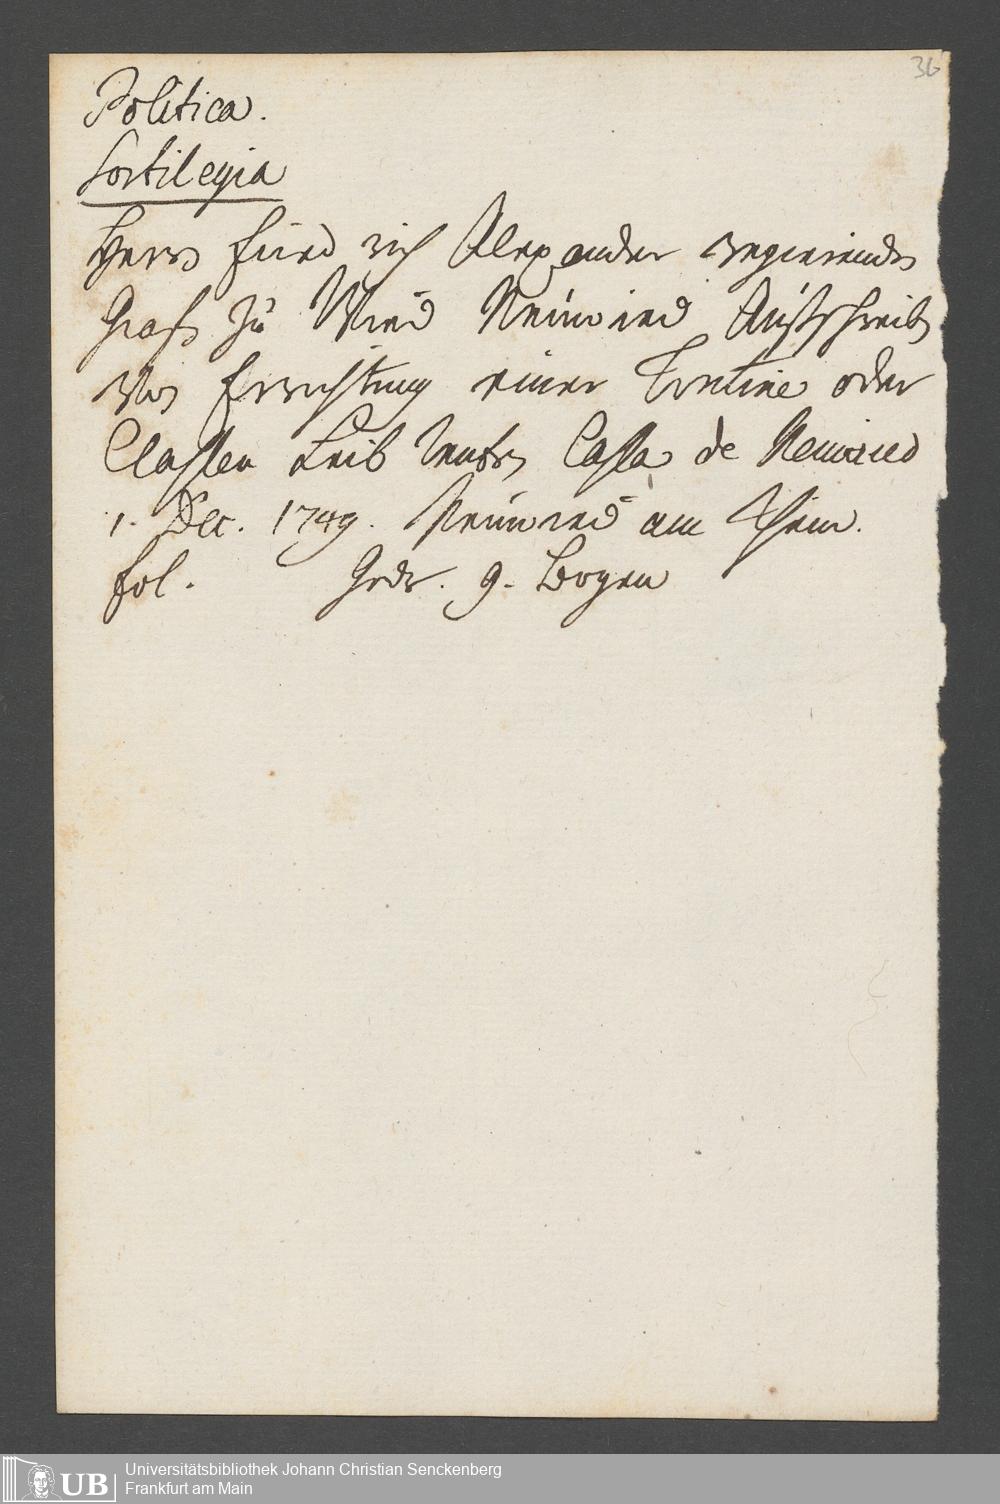 36
Politica.
Sortilegia
Herrn Fried rich Alexander regierenden
Grafs zu Wied Neuwied Ausschreib
von Errichtung einer Tontine oder
Classen Leib Renten Cassa de Neuwied
1. Dec. 1749. Neuwied am Rhein.
fol. Gedr. 9. Bogen
UB
Universitätsbibliothek Johann Christian Senckenberg
Frankfurt am Main